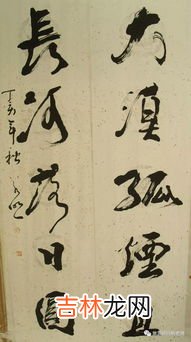 大漠孤煙直
長河落日圓
丁亥年秋
吉林龙网